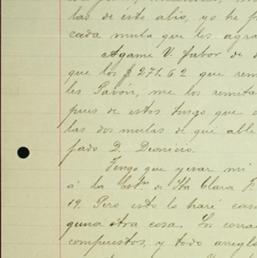 las de este abio, yo he f
cada mula que les agra
Agame V. fabor de
que los $271.62 que rem
les Pavon, me los remita
pues de estos tengo que
las dos mulas de que able
pado D. Dionicio.
Tengo que girar mi
á la Estn de Sta Clara
19. Pero esto lo haré cas
guna otra cosa. Los corra
compuestos, y todo arregl